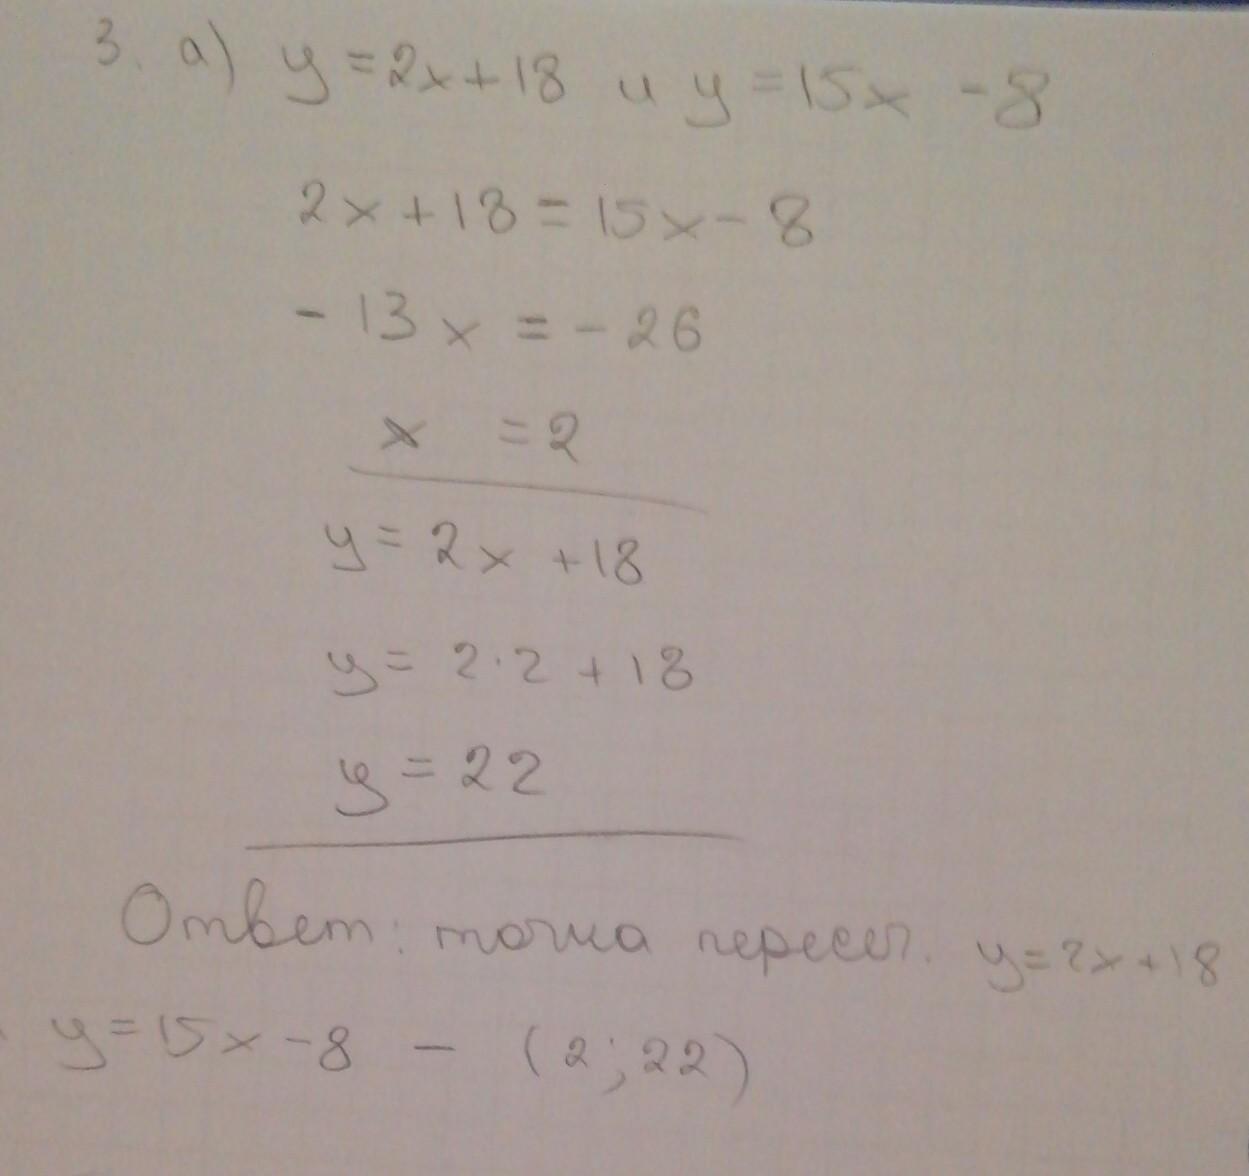 3. а) y = 2x + 18 и y = 15x - 8
2x + 18 = 15x - 8
- 13x = - 26
x = 2
y = 2x + 18
y = 2·2 + 18
y = 22
Ответ: точка пересеч. y = 2x + 18
y = 15x - 8 - (2; 22)